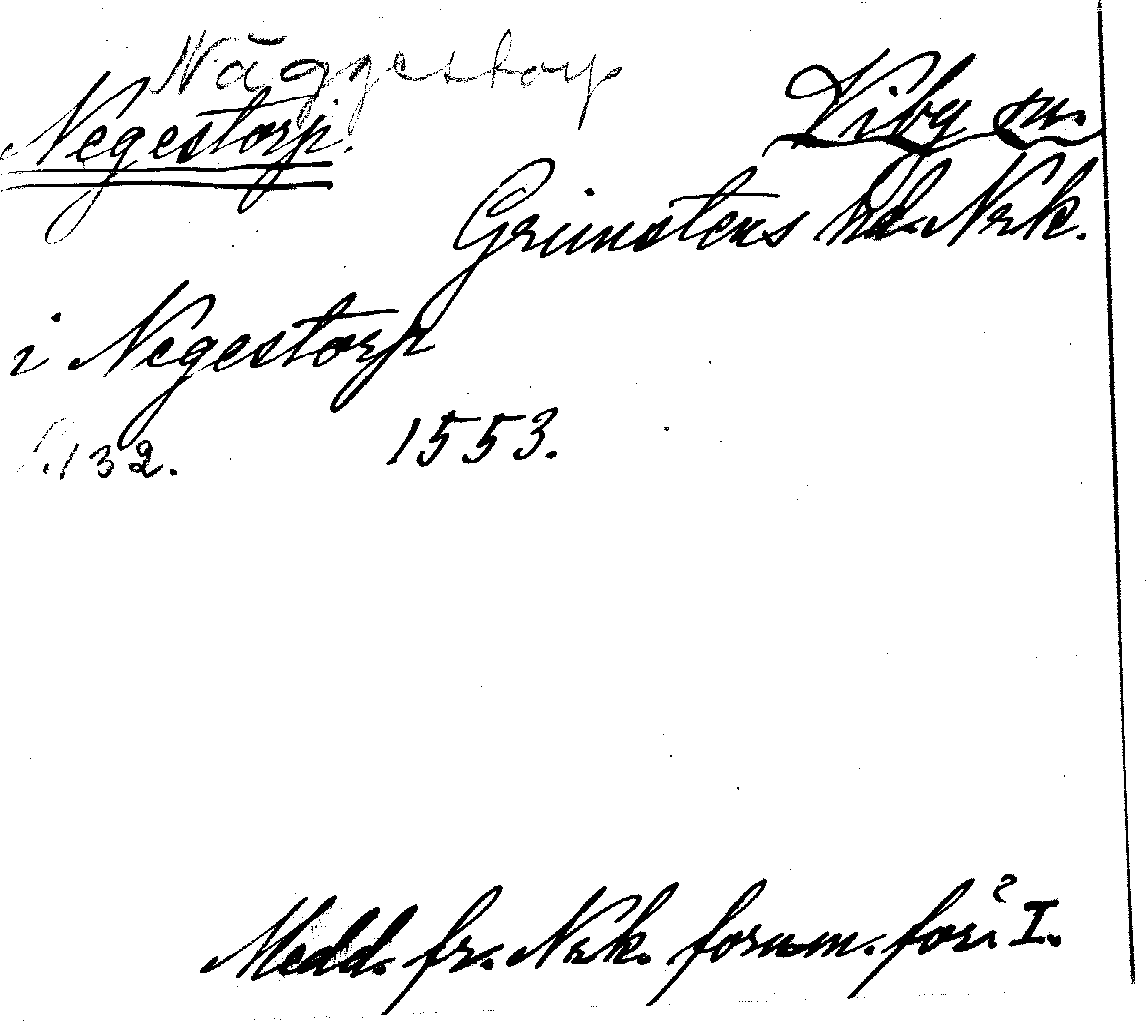 Näggestorp
Negestorp. Viby sn.
Grimstens hd. Nrk.
i Negestorp
S. 132. 1553.
Medd. fr. Nrk. fornm. för. I.